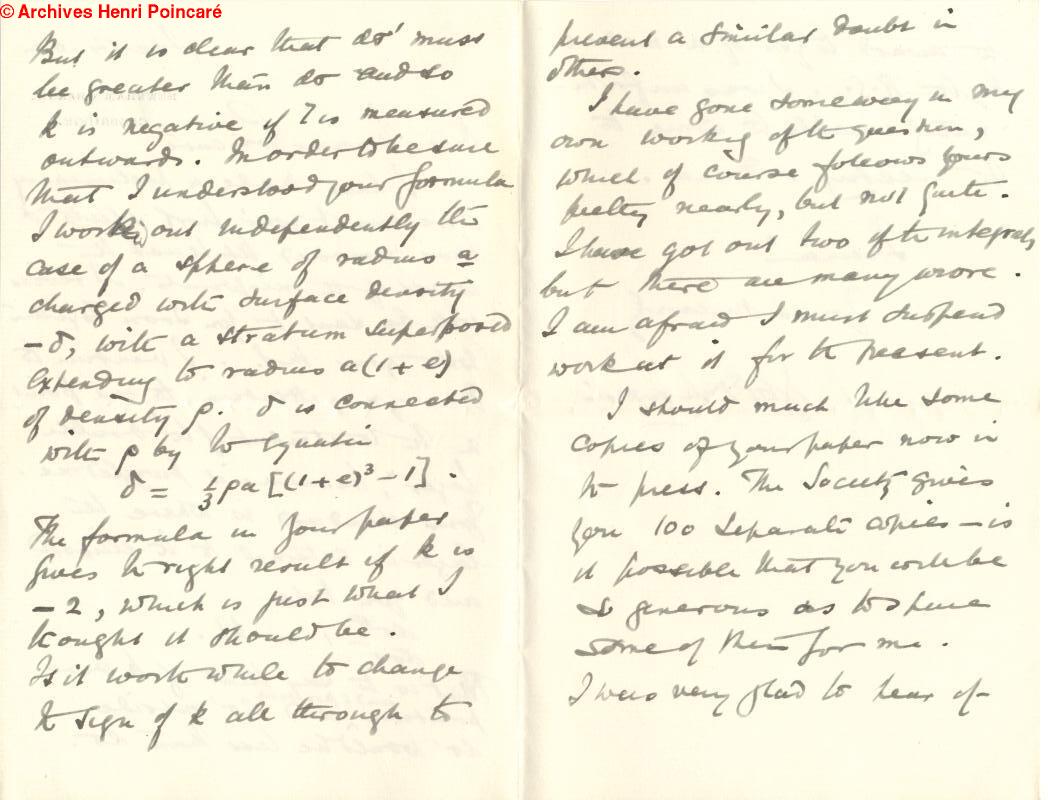 © Archives Henri Poincaré
But it is clear that dσ' must
be greater than dσ and so
k is negative if ζ is measured
outwards. In order to be sure
that I understood your formula
I worked out independently the
case of a sphere of radius a
charged with surface density
– δ, with a stratum superposed
extending to radius a(1 + e)
of density ρ. δ is connected
with ρ by the equation
δ = ⅓ρa[(1 + e)³ – 1].
The formula in your paper
gives the right result if k is
– 2, which is just what I
thought it should be.
Is it worth while to change
the sign of k all through to
present a similar doubt in
others.
I have gone some way in my
own working of the question,
which of course follows yours
pretty nearly, but not quite.
I have got out two of the integrals,
but there are many more.
I am afraid I must suspend
work at it for the present.
I should much like some
copies of your paper now in
the press. The Society gives
you 100 separate copies – is
it possible that you will be
so generous as to spare
some of them for me.
I was very glad to hear of